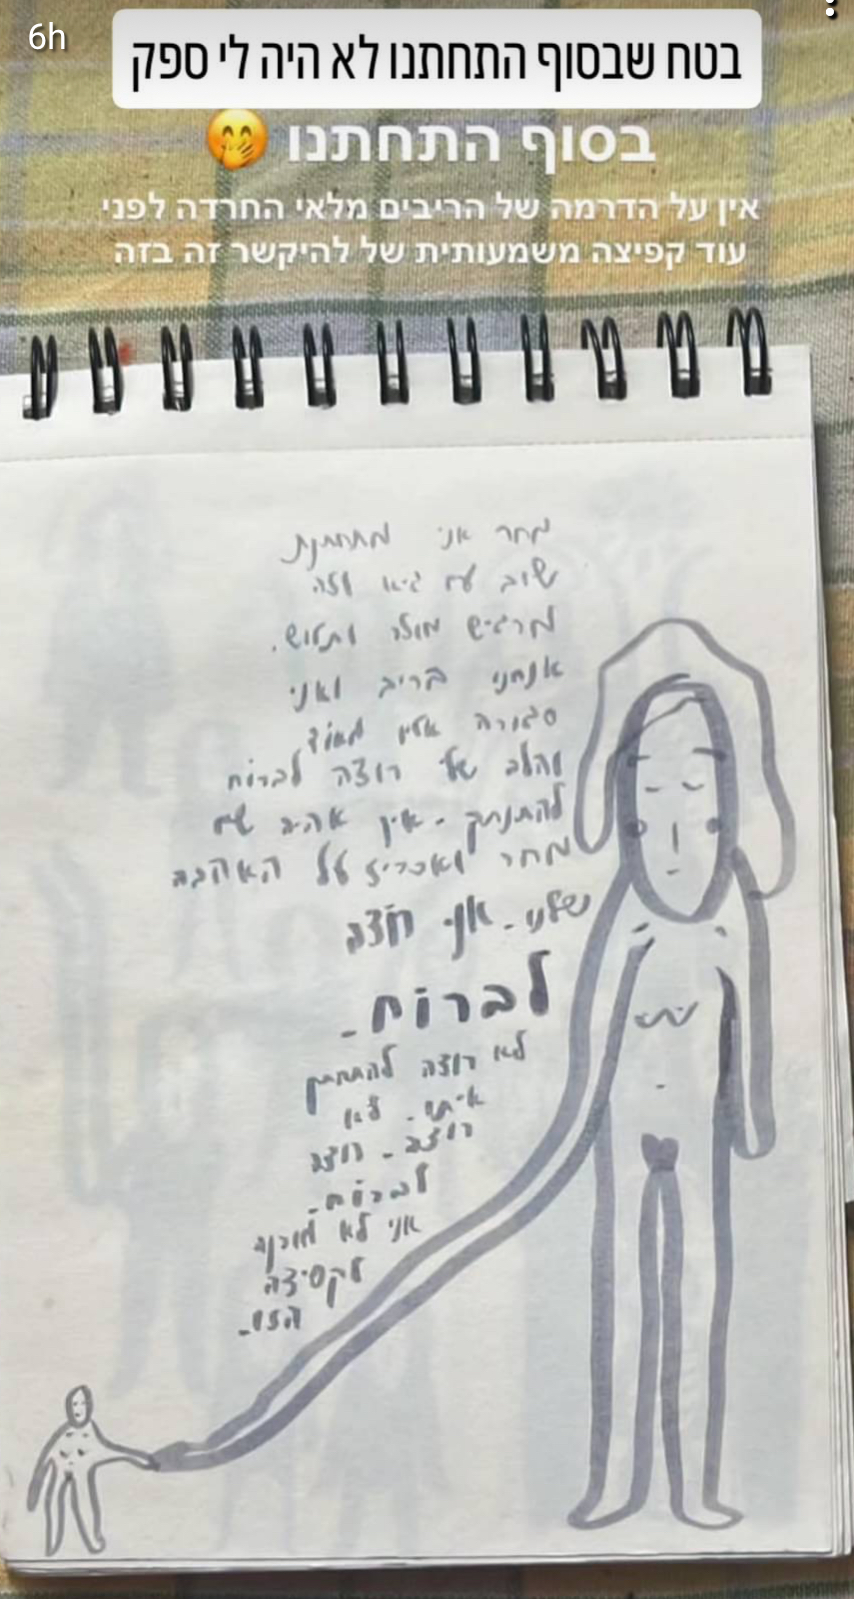 6h
בטח שבסוף התחתנו לא היה לי ספק
בסוף התחתנו 🤭
אין על הדרמה של הריבים מלאי החרדה לפני
עוד קפיצה משמעותית של להיקשר זה בזה
מחר אני מתחתנת
שוב עם גיא וזה
מרגיש מוזר ותלוש.
אנחנו בריב ואני
סגורה אליו מאוד
והלב שלי רוצה לברוח
להתנתק - איך אהיה שם
מחר ואכריז על האהבה
שלנו - אני רוצה
לברוח -
לא רוצה להתחתן
איתו - לא
רוצה - רוצה
לברוח -
אני לא מוכנה
לקפיצה
הזו -